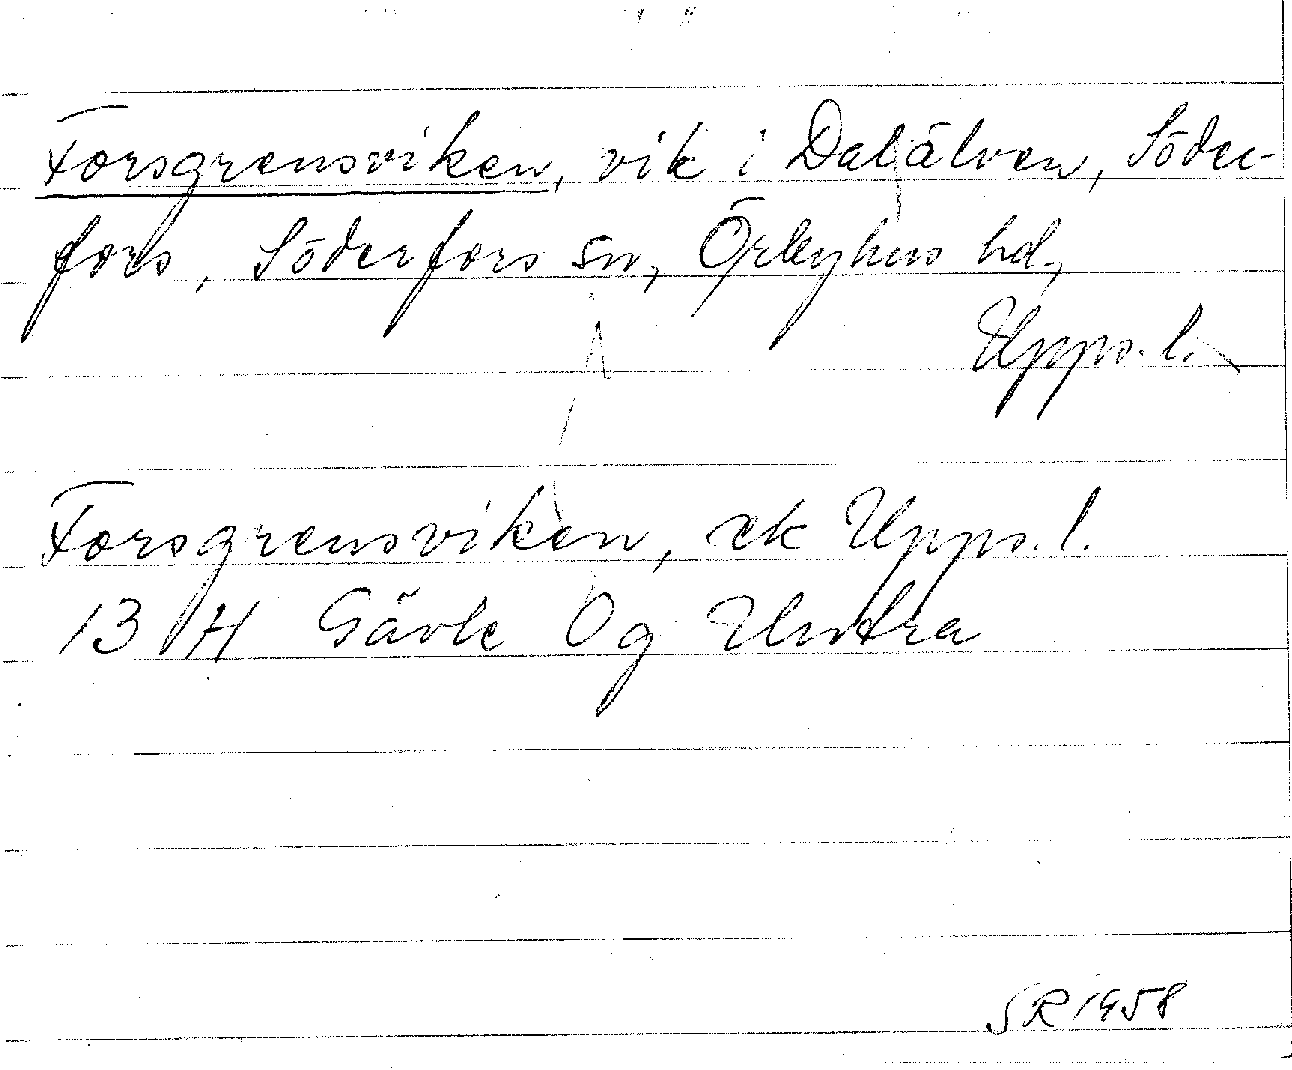 Forsgrensviken, vik i Dalälven, Söder-
fors, Söderfors sn, Örbyhus hd,
Upps. l.
Forsgrensviken, ek Upps. l.
13 H Gävle Og Untra
SR 1958